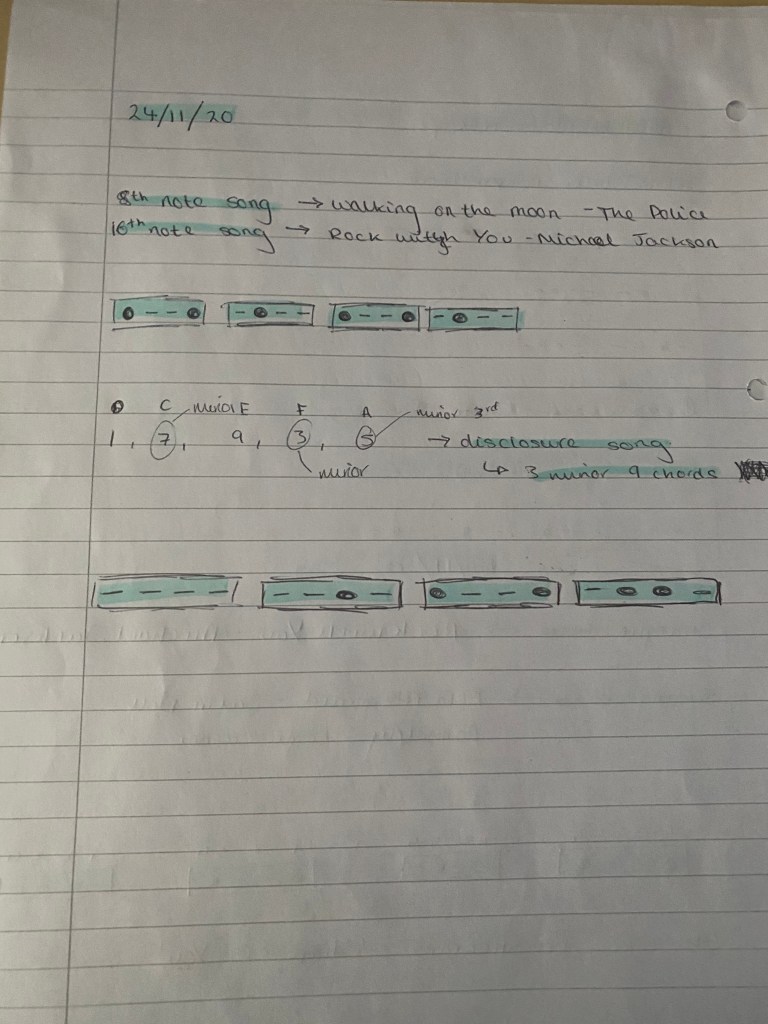 24/11/20
8th note song → walking on the moon - The Police
16th note song → Rock wittgh You - Michael Jackson
● - - ● - ● - - ● - - ● - ● - -
D C minor E F A minor 3rd
1, 7, 9, 3, 5 → disclosure song
minor ↳ 3 minor 9 chords
- - - - - - ● - ● - - ● - ● ● -